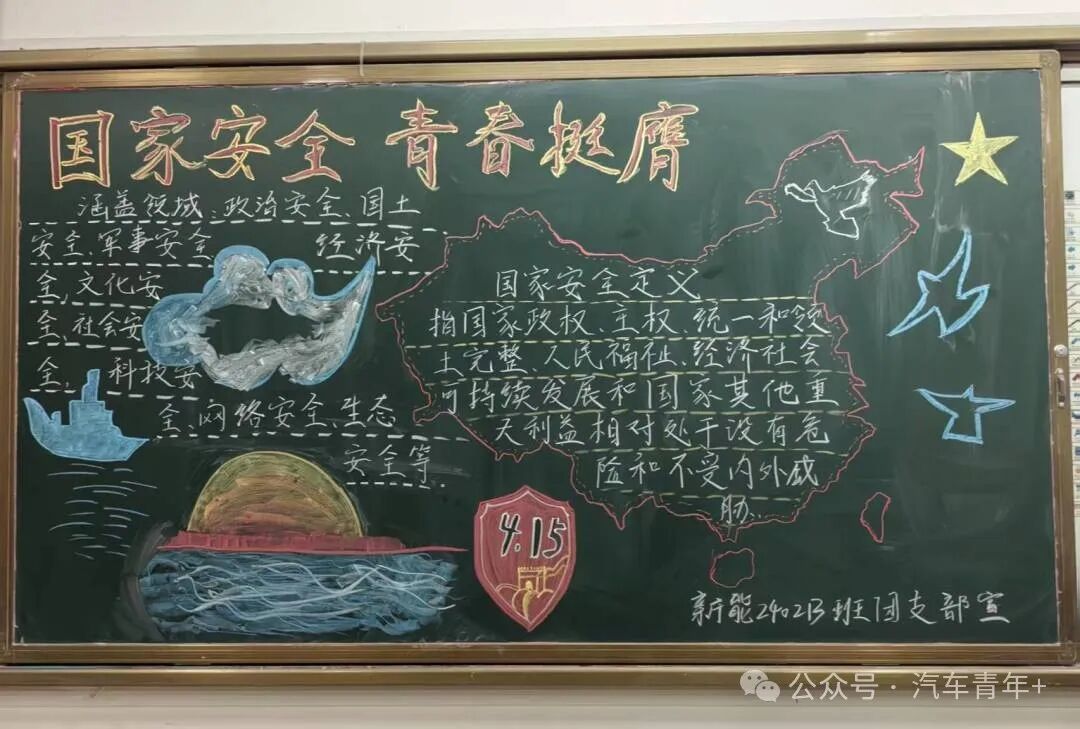 国家安全 青春挺膺
涵盖领域、政治安全、国土
安全、军事安全 经济安
全、文化安
全、社会安
全、科技安
全、网络安全、生态
安全等
国家安全定义
指国家政权、主权、统一和领
土完整、人民福祉、经济社会
可持续发展和国家其他重
大利益相对处于没有危
险和不受内外威
胁.
4.15
新能2402B班团支部宣
公众号·汽车青年+